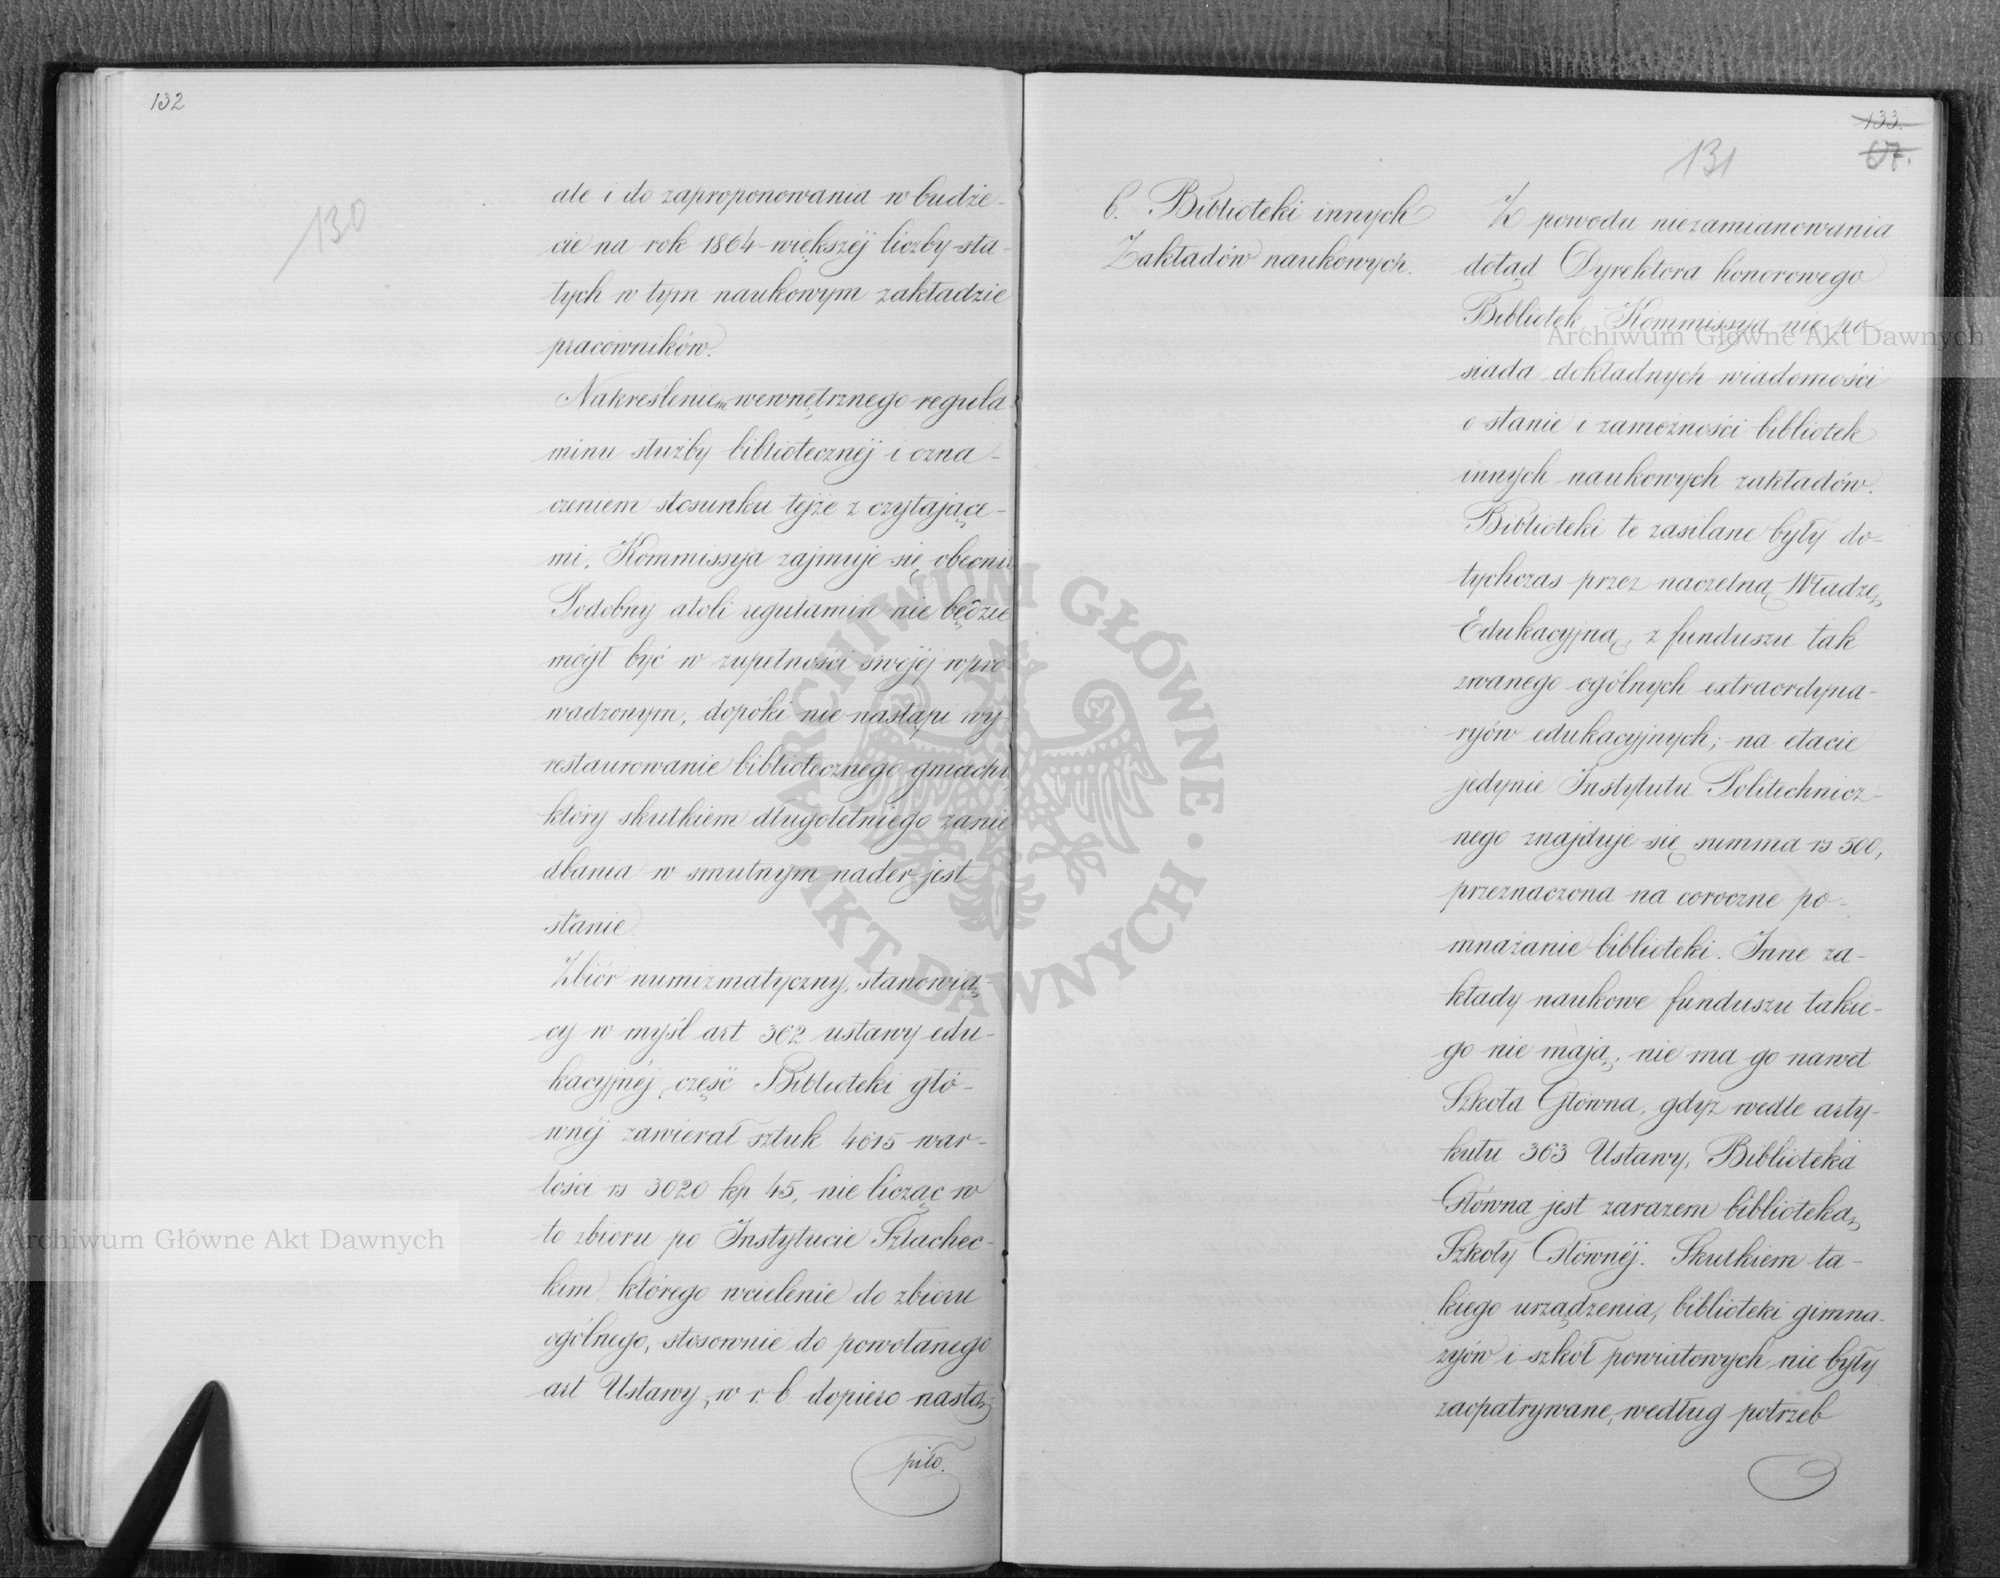 132
130
ale i do zaproponowania w budże-
cie na rok 1864 większéj liczby sta-
łych w tym naukowym zakładzie
pracowników.
Nakreśleniem wewnętrznego regula-
minu służby bibliotecznéj i ozna-
czeniem stosunku tejże z czytające-
mi, Kommissyja zajmuje się obecnie
Podobny atoli regulamin nie będzie
mógł być w zupełności swojéj wpro-
wadzonym, dopóki nie nastąpi wy-
restaurowanie bibliotecznego gmachu
który skutkiem długoletniego zanie
dbania w smutnym nader jest
stanie.
Zbiór numizmatyczny, stanowią-
cy w myśl art 362 ustawy edu-
kacyjnéj część Biblioteki głó-
wnéj zawierał sztuk 4615 war-
tości rs 3020 kp 45, nie licząc w
to zbioru po Instytucie Szlachec-
kim którego wcielenie do zbioru
ogólnego, stosownie do powołanego
art Ustawy, w r. b. dopiero nastą-
piło.
133.
67.
131
6. Biblioteki innych
Zakładów naukowych.
Z powodu niezamianowania
dotąd Dyrektora honorowego
Bibliotek, Kommissyja nie po-
siada dokładnych wiadomości
o stanie i zamożności bibliotek
innych naukowych zakładów.
Biblioteki te zasilane były do-
tychczas przez naczelną Władzę
Edukacyjną, z funduszu tak
zwanego ogólnych extraordyna-
ryjów edukacyjnych; na etacie
jedynie Instytutu Politechnicz-
nego znajduje się summa rs 500,
przeznaczona na coroczne po-
mnażanie biblioteki. Inne za-
kłady naukowe funduszu takie-
go nie mają; nie ma go nawet
Szkoła Główna, gdyż wedle arty-
kułu 363 Ustawy, Biblioteka
Główna jest zarazem biblioteką
Szkoły Głównéj. Skutkiem ta-
kiego urządzenia, biblioteki gimna-
zyjów i szkół powiatowych nie były
zaopatrywane, według potrzeb
Archiwum Główne Akt Dawnych
Archiwum Główne Akt Dawnych
ARCHIWUM GŁÓWNE · AKT DAWNYCH ·